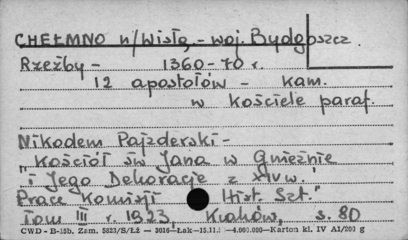 CHEŁMNO n/Wisłą, - woj. Bydgoszcz.
Rzeźby - 1360-70 r.
12 apostołów - kam.
w kościele paraf.
Nikodem Pajzderski -
"Kościół św Jana w Gnieźnie
i Jego Dekoracje z XIV w."
Prace Komisji Hist. Szt."
Tom III r. 1923, Kraków, s. 80
CWD - B-15b. Zam. 5823/S/Łź — 3016—Łak—15.11. —4.000.000—Karton kl. IV A1/200 g